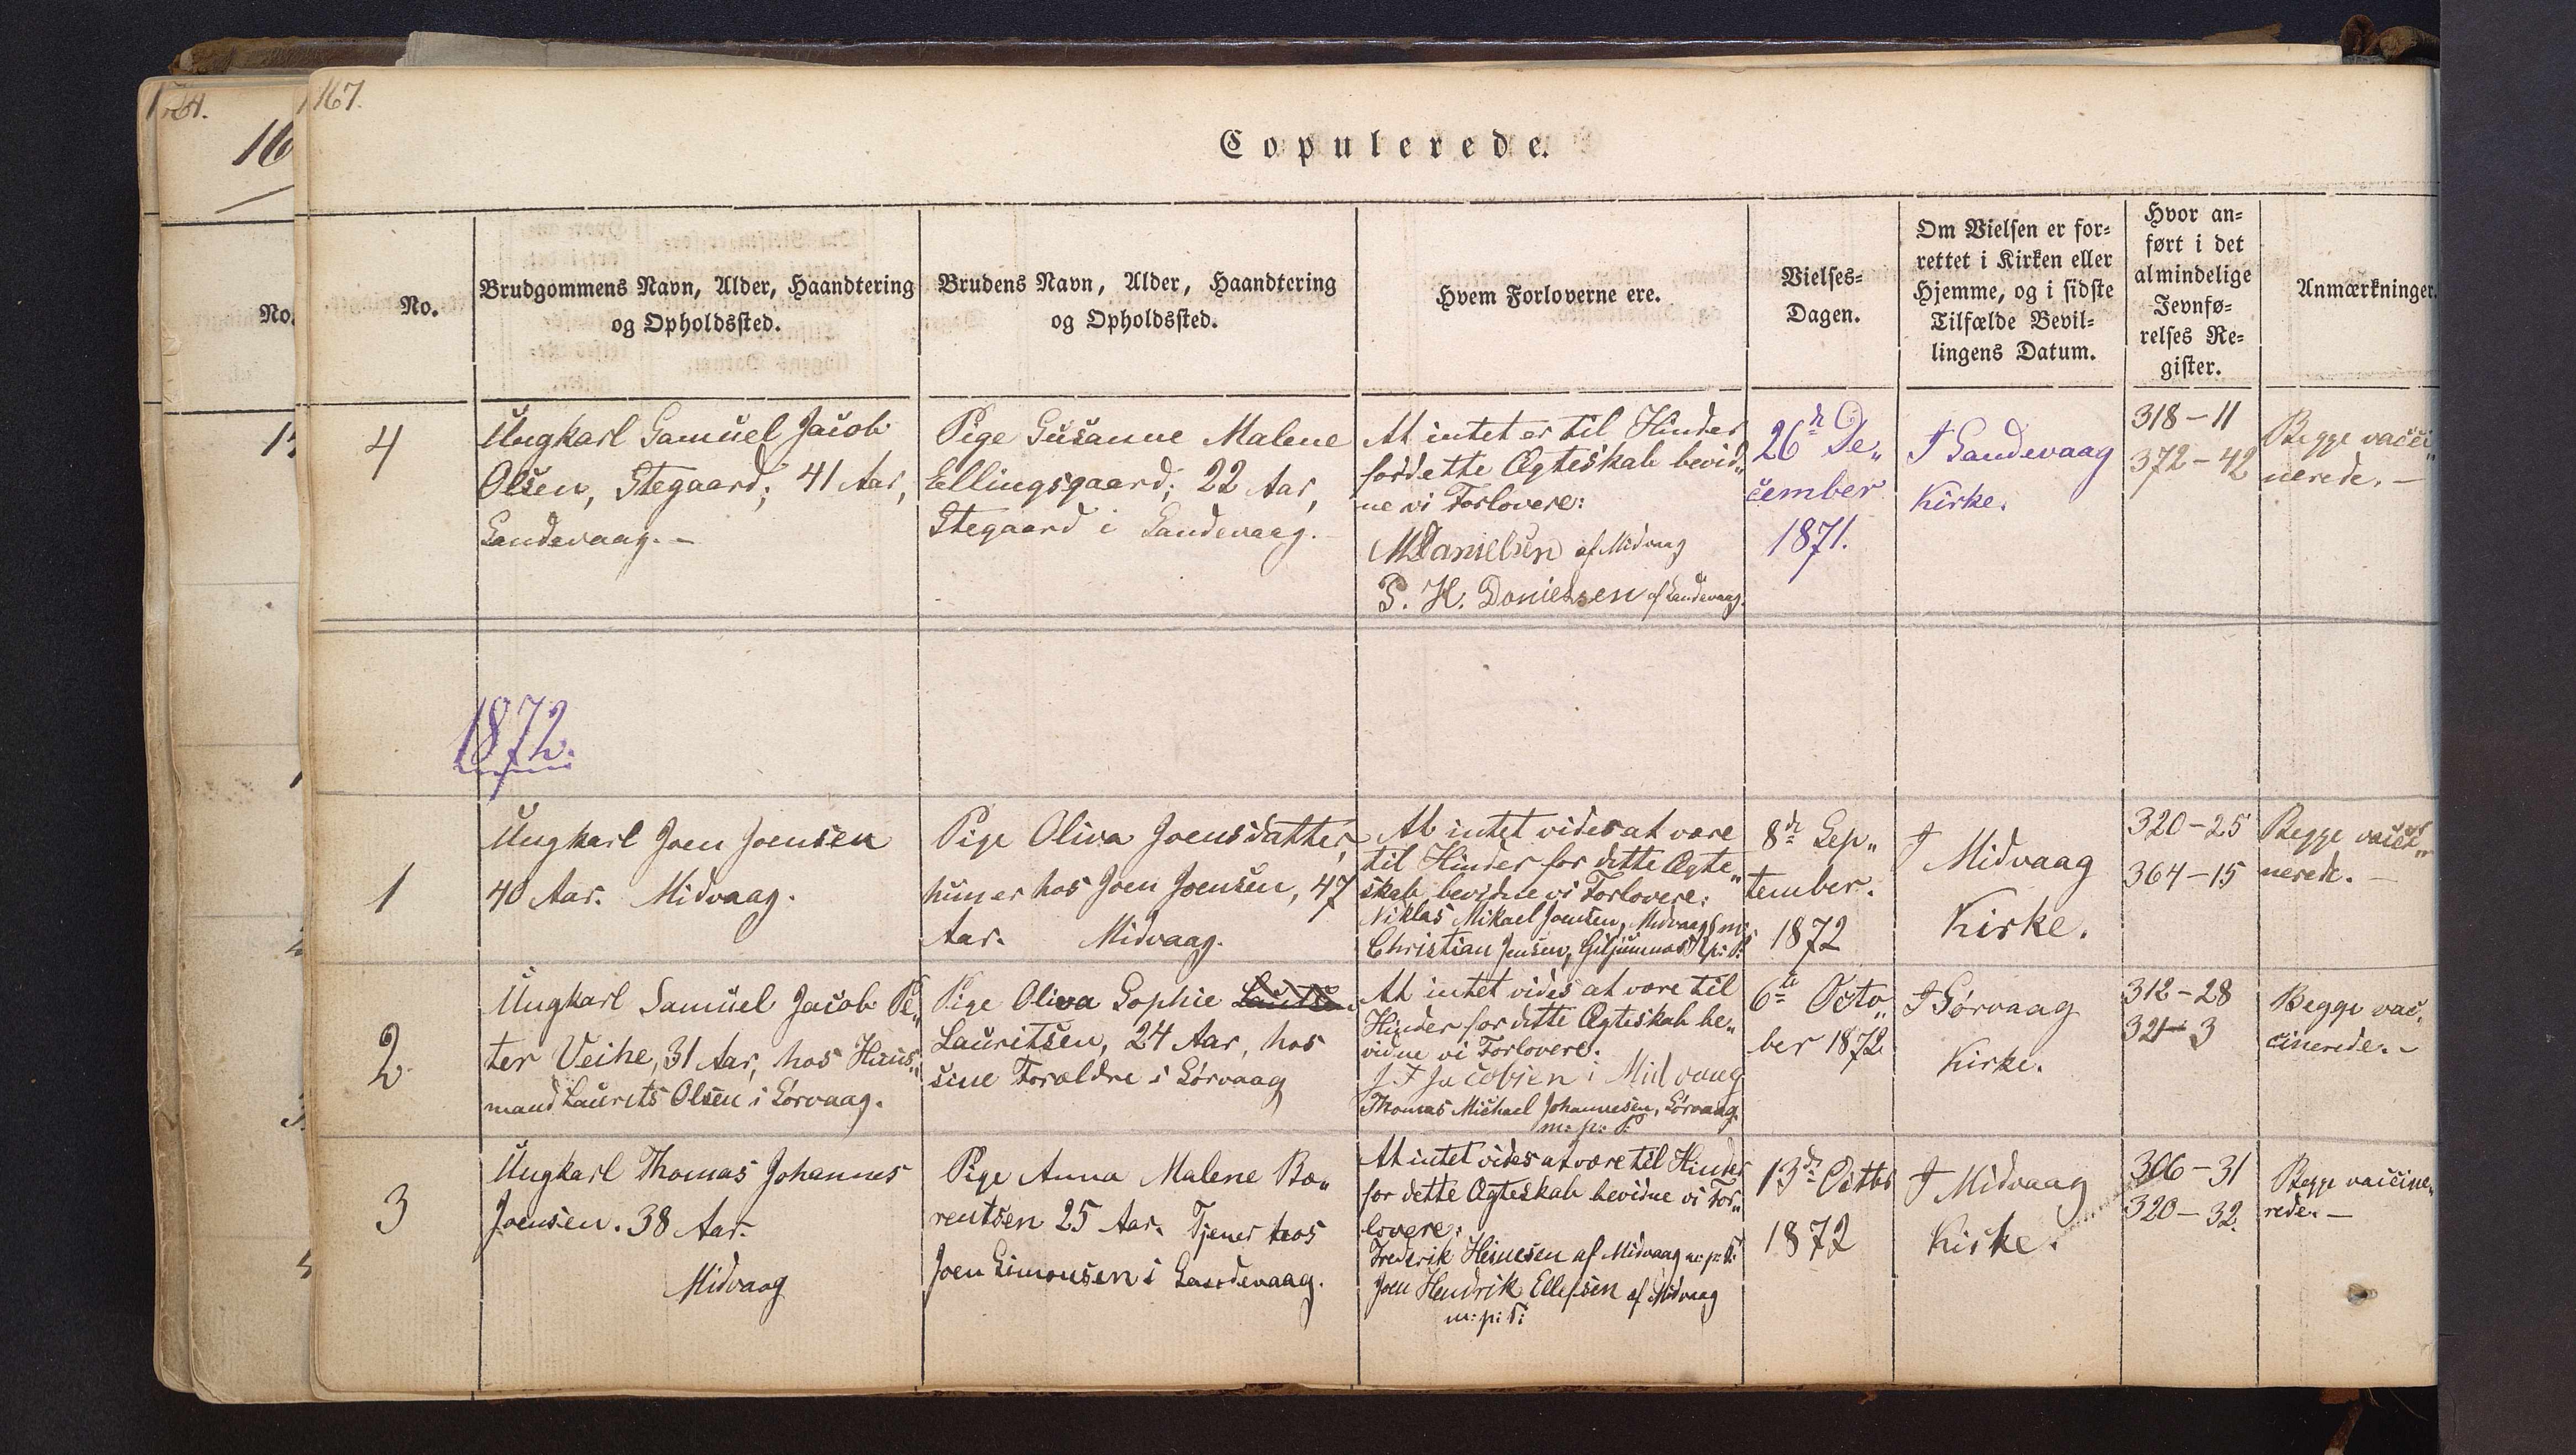 167.
164.
16
Copulerede.
No.
No.
Brudgommens Navn, Alder, Haandtering
og Opholdssted.
Brudens Navn, Alder, Haandtering
og Opholdssted.
Hvem Forloverne ere.
Vielses-
Dagen.
Om Vielsen er for-
rettet i Kirken eller
Hjemme, og i sidste
Tilfælde Bevil-
lingens Datum.
Hvor an-
ført i det
almindelige
Jevnfø-
relses Re-
gister.
Anmærkninger.
4
Ungkarl Samuel Jacob
Olsen, Stegaard; 41 Aar,
Sandevaag. -
Pige Susanne Malene
Ellingsgaard; 22 Aar,
Stegaard i Sandevaag. -
At intet er til Hinder
for dette Ægteskab bevid„
ne vi Forlovere:
MDanielsen af Midvaag
P. H. Danielsen af Sandevaag.
26de De„
cember
1871.
I Sandevaag
Kirke.
318 - 11
372 - 42
Begge vacci„
nerede. -
1872.
1
Ungkarl Joen Joensen
40 Aar. Midvaag.
Pige Oliva Joensdatter,
huus er hos Joen Joensen, 47
Aar. Midvaag.
At intet vides at være
til Hinder for dette Ægte„
skab bevidne vi Forlovere:
Niklas Mikael Joensen, Midvaag m:
Christian Jensen, Giljumnæs p: P:
8de Sep„
tember.
1872
I Midvaag
Kirke.
320 - 25
364 - 15
Begge vacci„
nerede. -
2
Ungkarl Samuel Jacob Pe„
ter Veihe, 31 Aar, hos Huus„
mand Laurits Olsen i Sørvaag.
Pige Oliva Sophie
Lauritsen, 24 Aar, hos
sine Forældre i Sørvaag
At intet vides at være til
Hinder for dette Ægteskab be„
vidne vi Forlovere:
J F Jacobsen i Midvaag
Thomas Michael Johannesen, Sørvaag.
m: p: P:
6te Octo„
ber 1872
I Sørvaag
Kirke.
312 - 28
321 - 3
Begge vac„
cinerede. -
3
Ungkarl Thomas Johannes
Joensen. 38 Aar.
Midvaag
Pige Anna Malene Bæ„
rentsen 25 Aar. Tjener hos
Joen Simonsen i Sandevaag.
At intet vides at være til Hinder
for dette Ægteskab bevidne vi For„
lovere:
Frederik Heinesen af Midvaag m: p: P:
Joen Hendrik Ellefsen af Midvaag
m: p: P:
13de Octbr
1872
I Midvaag
Kirke.
306 - 31
320 - 32.
Begge vaccine„
rede. -